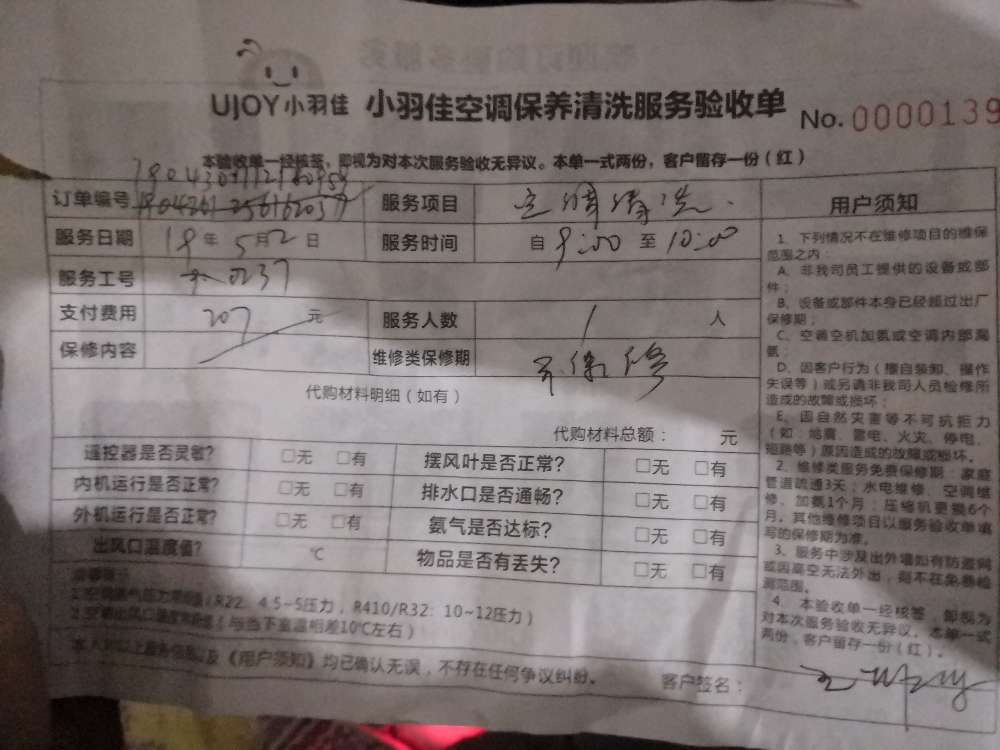 UJOY小羽佳 小羽佳空调保养清洗服务验收单 No. 0000139
本验收单一经核签，即视为对本次服务验收无异议。本单一式两份，客户留存一份（红）
订单编号 服务项目 空调清洗
服务日期 19年5月2日 服务时间 自9:00至10:00
服务工号 0237
支付费用 207元 服务人数 1人
保修内容 维修类保修期
代购材料明细（如有）
代购材料总额： 元
遥控器是否灵敏? □无 □有 摆风叶是否正常? □无 □有
内机运行是否正常? □无 □有 排水口是否通畅? □无 □有
外机运行是否正常? □无 □有 氨气是否达标? □无 □有
出风口温度值? ℃ 物品是否有丢失? □无 □有
（R22：4.5~5压力，R410/R32：10~12压力）
（与当下室温相差10℃左右）
及《用户须知》均已确认无误，不存在任何争议纠纷。
客户签名：
用户须知
1、下列情况不在维修项目的维保
范围之内：
A、非我司员工提供的设备或部
件；
B、设备或部件本身已经超过出厂
保修期；
C、空调空机加氨或空调内部漏
氨；
D、因客户行为（擅自装卸、操作
失误等）或另请非我司人员检修所
造成的故障或损坏；
E、因自然灾害等不可抗拒力
（如：地震、雷电、火灾、停电、
短路等）原因造成的故障或损坏。
2、维修类服务免费保修期：家庭
管道疏通3天；水电维修、空调维
修、加氨1个月；压缩机更换6个
月。其他维修项目以服务验收单填
写的保修期为准。
3、服务中涉及出外墙如有防盗网
或因高空无法外出，则不在免费检
测范围。
4、本验收单一经核签，即视为
对本次服务验收无异议。本单一式
两份，客户留存一份（红）。